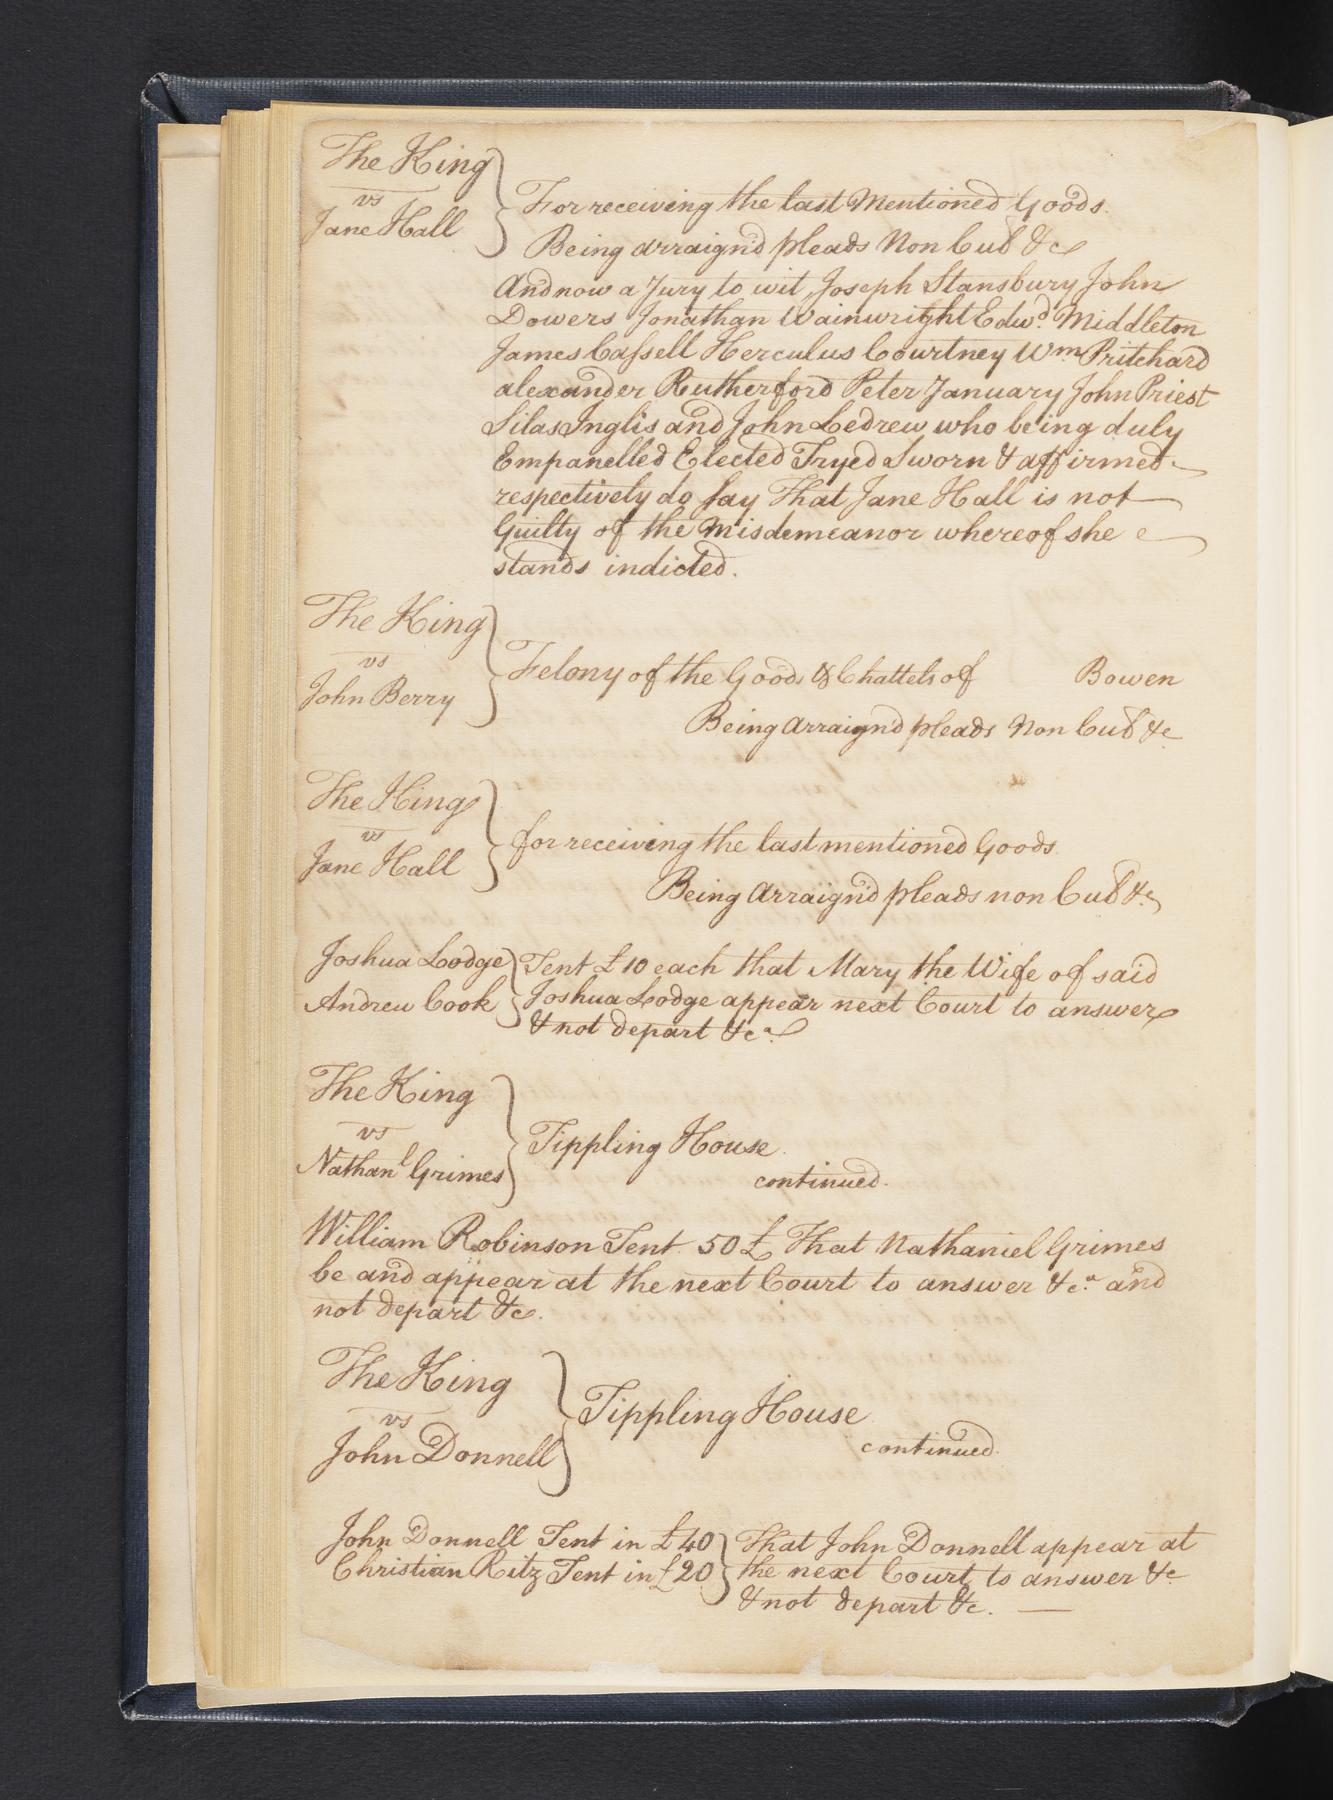 The King
vs
Jane Hall
For receiving the last Mentioned Goods.
Being arraign'd pleads Non Cul &c
And now a Jury to wit, Joseph Stansbury John
Dowers Jonathan Wainwright Edwd. Middleton
James Cassell Herculus Courtney Wm Pritchard
alexander Rutherford Peter January John Priest
Silas Inglis and John Ledrew who being duly
Empanelled Elected Tryed Sworn & affirmed
respectively do say That Jane Hall is not
Guilty of the Misdemeanor whereof she
stands indicted.
The King
vs
John Berry
Felony of the Goods & Chattels of Bowen
Being Arraign'd pleads Non Cul &c
The King
vs
Jane Hall
for receiving the last mentioned Goods.
Being Arraign'd pleads non Cul &c
Joshua Lodge
Andrew Cook
Tent £10 each that Mary the Wife of said
Joshua Lodge appear next Court to answer
& not depart &ca.
The King
vs
Nathanl Grimes
Tippling House.
continued.
William Robinson Tent. 50£ That Nathaniel Grimes
be and appear at the next Court to answer &c.a and
not depart &c.
The King
vs
John Donnell
Tippling House
continued.
John Donnell Tent in £40
Christian Ritz Tent in £20
That John Donnell appear at
the next Court to answer &c
& not depart &c. —